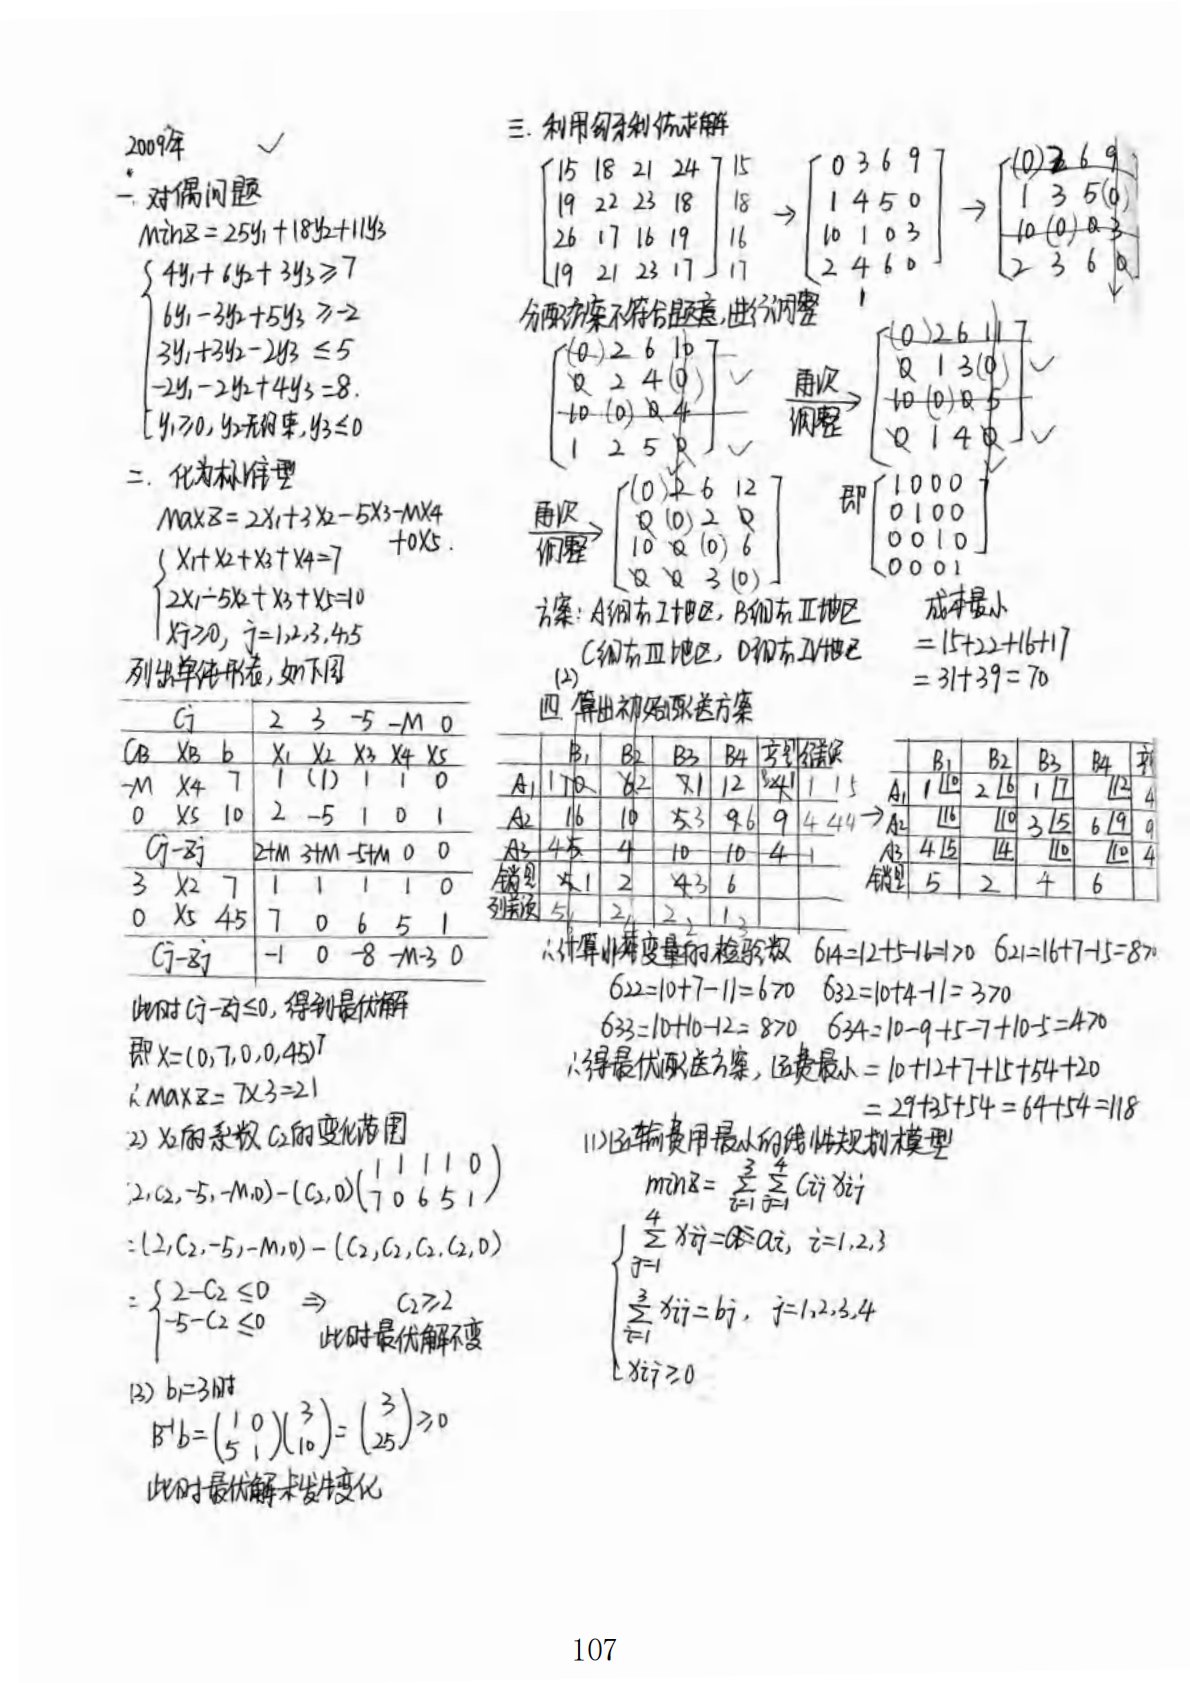 2009年 ✓
一. 对偶问题
min z = 25y₁+18y₂+11y₃
4y₁+6y₂+3y₃≥7
6y₁-3y₂+5y₃≥-2
3y₁+3y₂-2y₃≤5
-2y₁-2y₂+4y₃=8.
y₁≥0, y₂无约束, y₃≤0
二. 化为标准型
max z = 2x₁+3x₂-5x₃-Mx₄
+0x₅.
x₁+x₂+x₃+x₄=7
2x₁-5x₂+x₃+x₅=10
xj≥0, j=1,2,3,4,5
列出单纯形表, 如下图
Cj 2 3 -5 -M 0
CB XB b X₁ X₂ X₃ X₄ X₅
-M X₄ 7 1 (1) 1 1 0
0 X₅ 10 2 -5 1 0 1
Cj-Zj 2+M 3+M -5+M 0 0
3 X₂ 7 1 1 1 1 0
0 X₅ 45 7 0 6 5 1
Cj-Zj -1 0 -8 -M-3 0
此时Cj-Zj≤0, 得到最优解
即X=(0,7,0,0,45)ᵀ
∴max z = 7×3=21
2) X₂的系数C₂的变化范围
2,C₂,-5,-M,0)-(C₂,0)(1 1 1 1 0
7 0 6 5 1)
=(2,C₂,-5,-M,0)-(C₂,C₂,C₂,C₂,0)
= 2-C₂≤0 ⇒ C₂≥2
-5-C₂≤0
此时最优解不变
(3) b₁=3时
B⁻¹b=(1 0
5 1)(3
10)=(3
25)≥0
此时最优解未发生变化
三. 利用匈牙利法求解
15 18 21 24 15
19 22 23 18 18
26 17 16 19 16
19 21 23 17 17
→
0 3 6 9
1 4 5 0
10 1 0 3
2 4 6 0
1
→
(0) 2 6 9
1 3 5 (0)
10 (0) 0 3
2 3 6 0
分配方案不符合题意, 进行调整
(0) 2 6 10
0 2 4 (0) ✓
10 (0) 0 4
1 2 5 0 ✓
再次
调整 →
(0) 2 6 11
0 1 3 (0) ✓
10 (0) 0 5
0 1 4 0 ✓
再次
调整 →
(0) 2 6 12
0 (0) 2 0
10 0 (0) 6
0 0 3 (0)
即
1 0 0 0
0 1 0 0
0 0 1 0
0 0 0 1
方案: A组有I地区, B组有II地区
C组有III地区, D组有IV地区
成本最小
=15+22+16+17
=31+39=70
(2)
四 算出初始配送方案
B₁ B₂ B₃ B₄
A₁
A₂ 16 10 9
A₃ 4 10 10 4
销量 2 6
B₁ B₂ B₃ B₄
A₁ 1 10 2 6 1 7 12 4
→A₂ 16 10 3 5 6 9 9
A₃ 4 5 4 10 10 4
销量 5 2 4 6
∴计算非基变量的检验数 б14=12+5-16=1>0 б21=16+7-15=8>0
б22=10+7-11=6>0 б32=10+4-11=3>0
б33=10+10-12=8>0 б34=10-9+5-7+10-5=4>0
∴得最优配送方案, 运费最小=10+12+7+15+54+20
=29+35+54=64+54=118
(1)运输费用最小的线性规划模型
min z = ∑³ᵢ₌₁ ∑⁴ⱼ₌₁ Cij xij
∑⁴ⱼ₌₁ xij=ai, i=1,2,3
∑³ᵢ₌₁ xij=bj, j=1,2,3,4
xij≥0
107